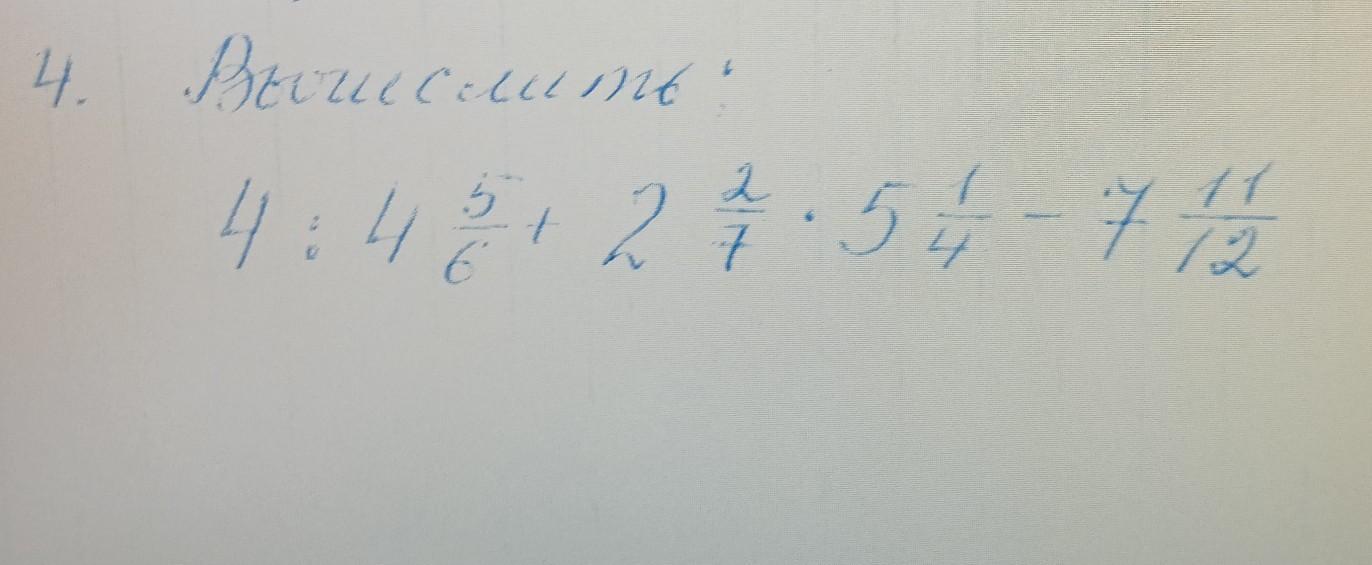 4. Вычислить:
4 : 4 5/6 + 2 2/7 · 5 1/4 - 7 11/12